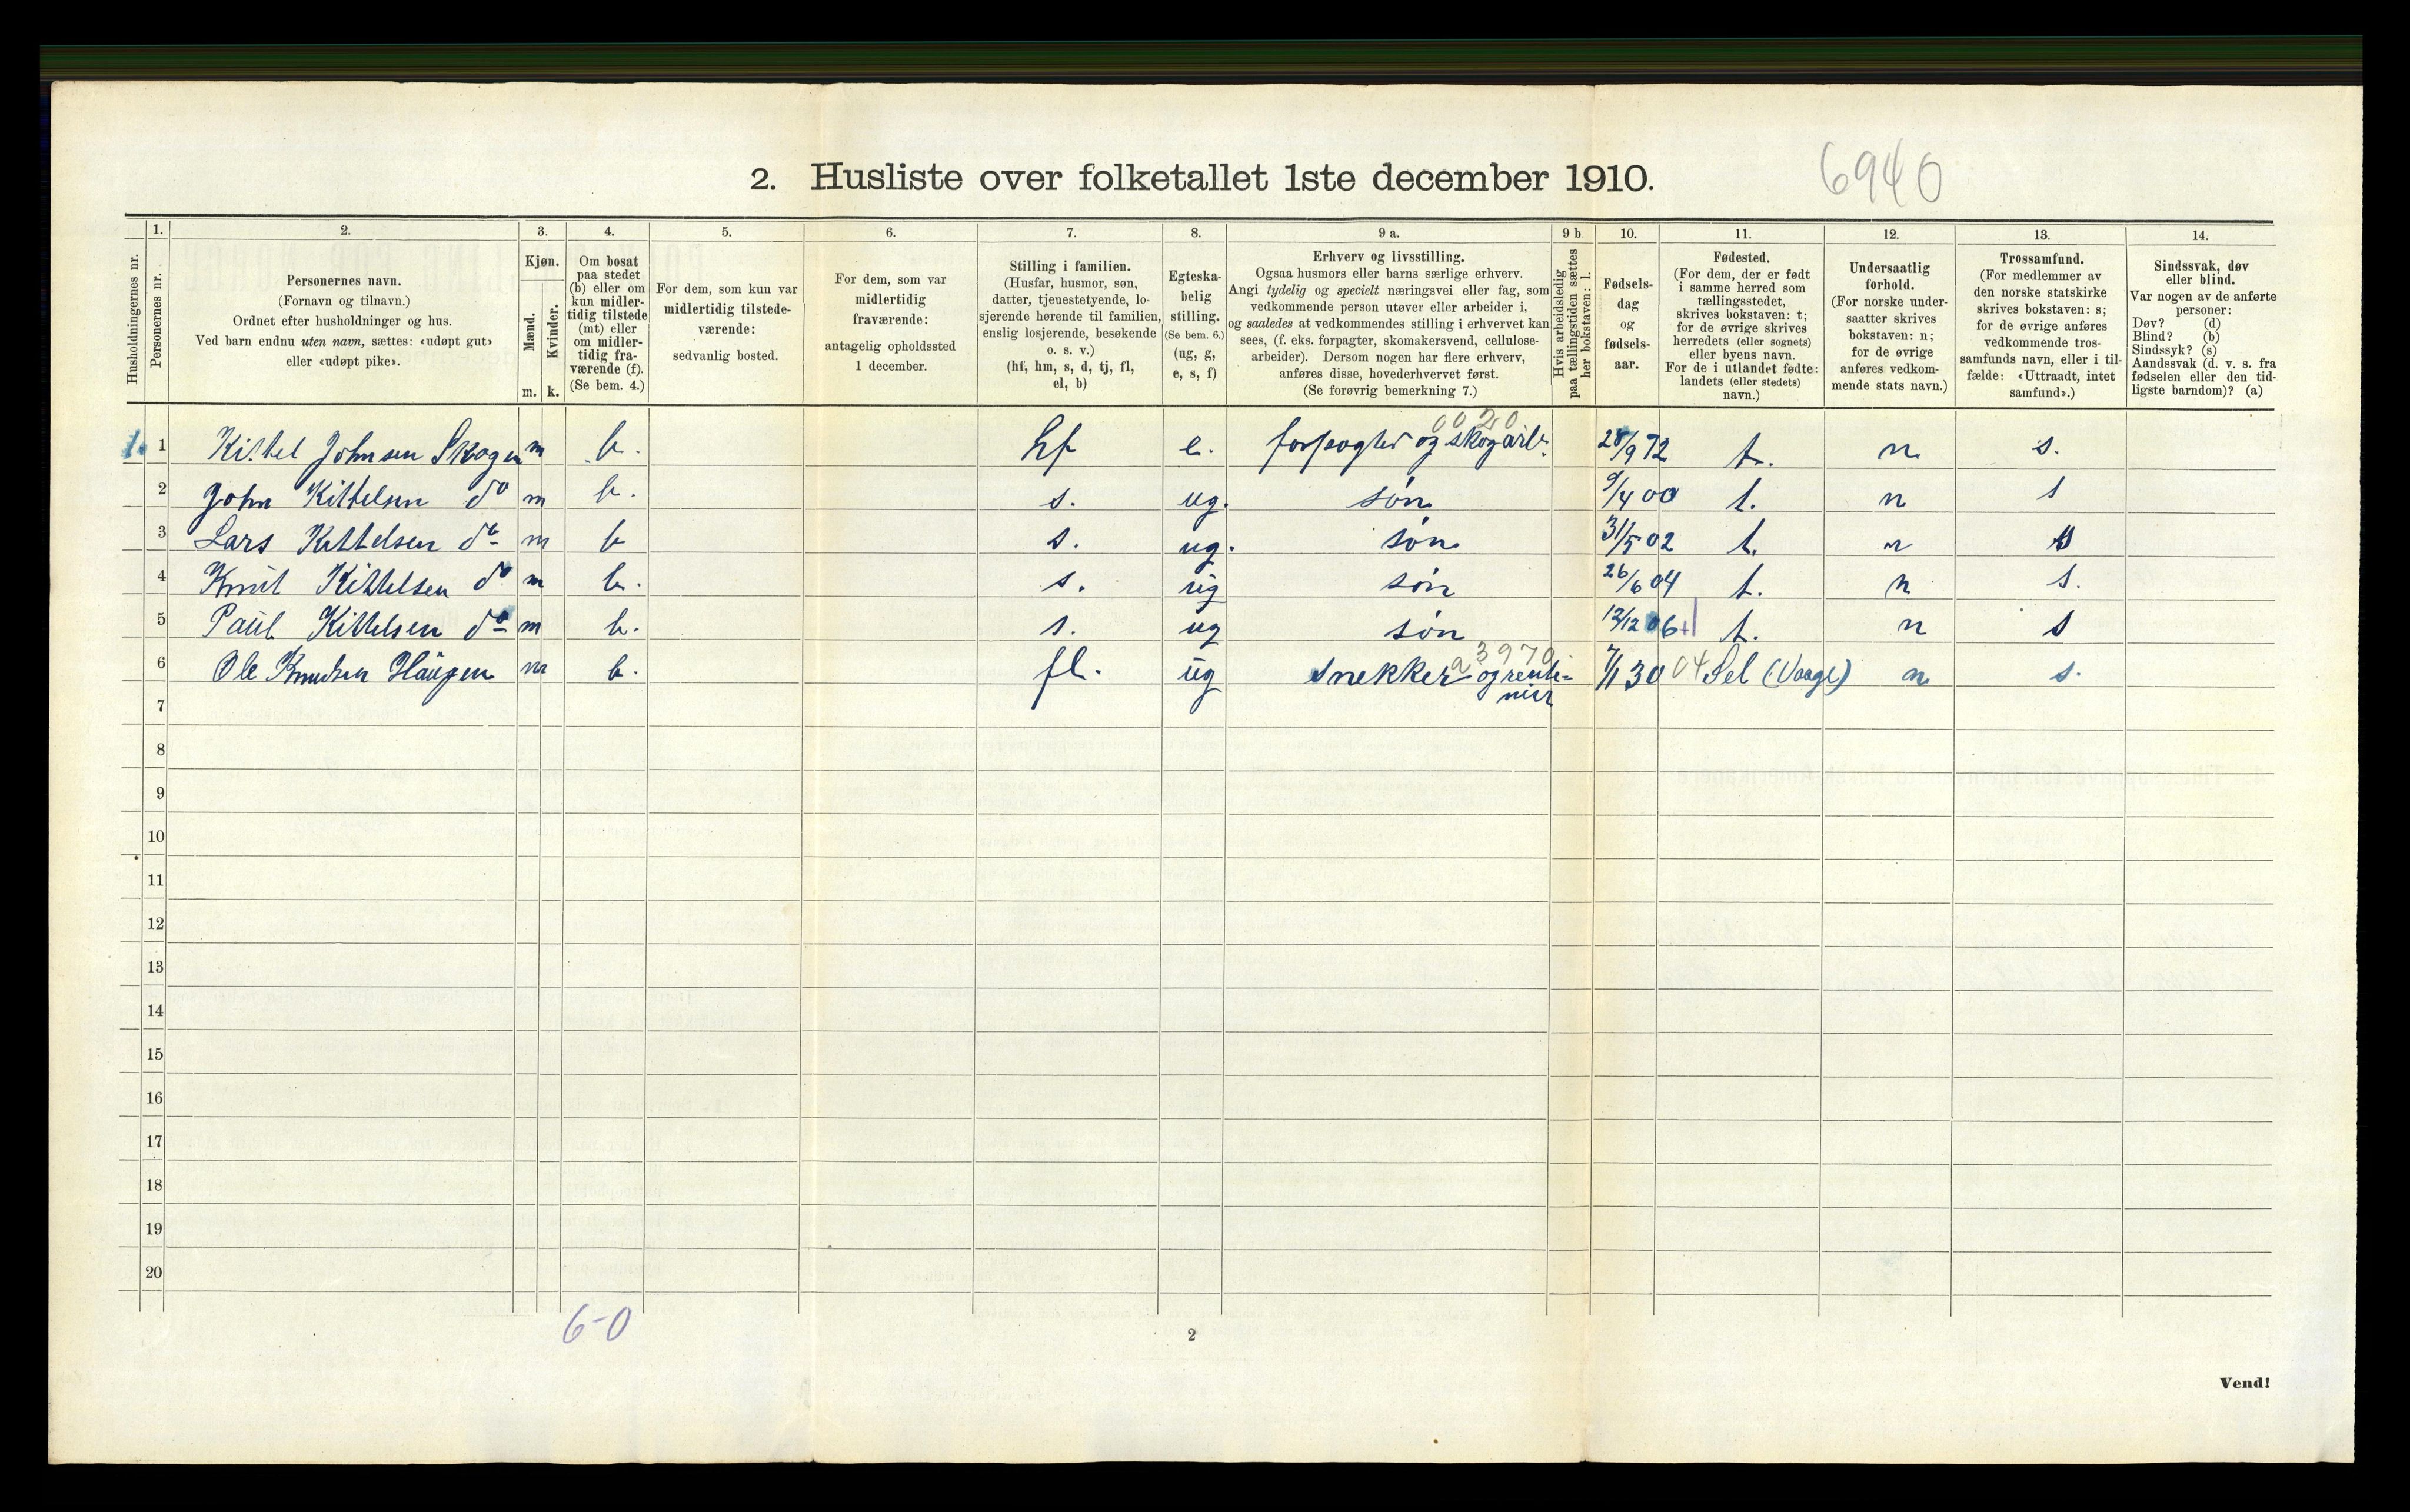 2. Husliste over folketallet 1ste december 1910.
6940
Husholdningernes nr.
1.
Personernes nr.
2.
Personernes navn.
(Fornavn og tilnavn.)
Ordnet efter husholdninger og hus.
Ved barn endnu uten navn, sættes: «udøpt gut»
eller «udøpt pike».
3.
Kjøn.
Mænd.
Kvinder.
m. k.
4.
Om bosat
paa stedet
(b) eller om
kun midler-
tidig tilstede
(mt) eller
om midler-
tidig fra-
værende (f).
(Se bem. 4.)
5.
For dem, som kun var
midlertidig tilstede-
værende:
sedvanlig bosted.
6.
For dem, som var
midlertidig
fraværende:
antagelig opholdssted
1 december.
7.
Stilling i familien.
(Husfar, husmor, søn,
datter, tjenestetyende, lo-
sjerende hørende til familien,
enslig losjerende, besøkende
o. s. v.)
(hf, hm, s, d, tj, fl,
el, b)
8.
Egteska-
belig
stilling.
(Se bem. 6.)
(ug, g,
e, s, f)
9 a.
Erhverv og livsstilling.
Ogsaa husmors eller barns særlige erhverv.
Angi tydelig og specielt næringsvei eller fag, som
vedkommende person utøver eller arbeider i,
og saaledes at vedkommendes stilling i erhvervet kan
sees, (f. eks. forpagter, skomakersvend, cellulose-
arbeider). Dersom nogen har flere erhverv,
anføres disse, hovederhvervet først.
(Se forøvrig bemerkning 7.)
9 b
Hvis arbeidsledig
paa tællingstiden sættes
her bokstaven: l.
10.
Fødsels-
dag
og
fødsels-
aar.
11.
Fødested.
(For dem, der er født
i samme herred som
tællingsstedet,
skrives bokstaven: t;
for de øvrige skrives
herredets (eller sognets)
eller byens navn.
For de i utlandet fødte:
landets (eller stedets)
navn.)
12.
Undersaatlig
forhold.
(For norske under-
saatter skrives
bokstaven: n;
for de øvrige
anføres vedkom-
mende stats navn.)
13.
Trossamfund.
(For medlemmer av
den norske statskirke
skrives bokstaven: s;
for de øvrige anføres
vedkommende tros-
samfunds navn, eller i til-
fælde: «Uttraadt, intet
samfund».)
14.
Sindssvak, døv
eller blind.
Var nogen av de anførte
personer:
Døv? (d)
Blind? (b)
Sindssyk? (s)
Aandssvak (d. v. s. fra
fødselen eller den tid-
ligste barndom)? (a)
0020
1. 1 Kittel Johnsen Skogen m b. hf e. forpagter og skogarb. 28/9 72 t. n s.
2 John Kittelsen do m b. s. ug. søn 9/4 00 t. n s
3 Lars Kittelsen do m b s. ug. søn 31/5 02 t. n s
4 Knut Kittelsen do m b. s. ug søn 26/6 04 t. n s.
5 Paul Kittelsen do m b. s. ug søn 12/12 06 t. n s
a 3970
6 Ole Knudsen Haugen m b. fl. ug snekker og renti- 7/1 30 04 Sel (Vaage) n s.
nier
7
8
9
10
11
12
13
14
15
16
17
18
19
20
6-0
2
Vend!